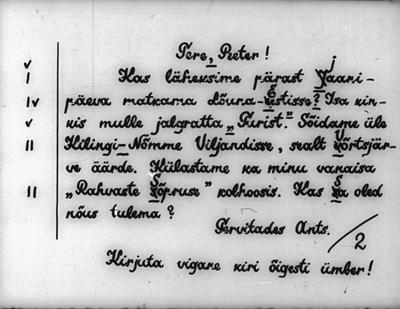 v Tere, Peeter!
I Kas läheksime pärast Jaani-
Iv päeva matkama Lõuna-Eestisse? Isa kin-
v kis mulle jalgratta „Turist." Sõidame üle
II Kilingi-Nõmme Viljandisse, sealt Võrtsjär-
ve äärde. Külastame ka minu vanaisa
II „Rahvaste Sõpruse" kolhoosis. Kas Sa oled
nõus tulema?
Tervitades Ants.
2
Kirjuta vigane kiri õigesti ümber!